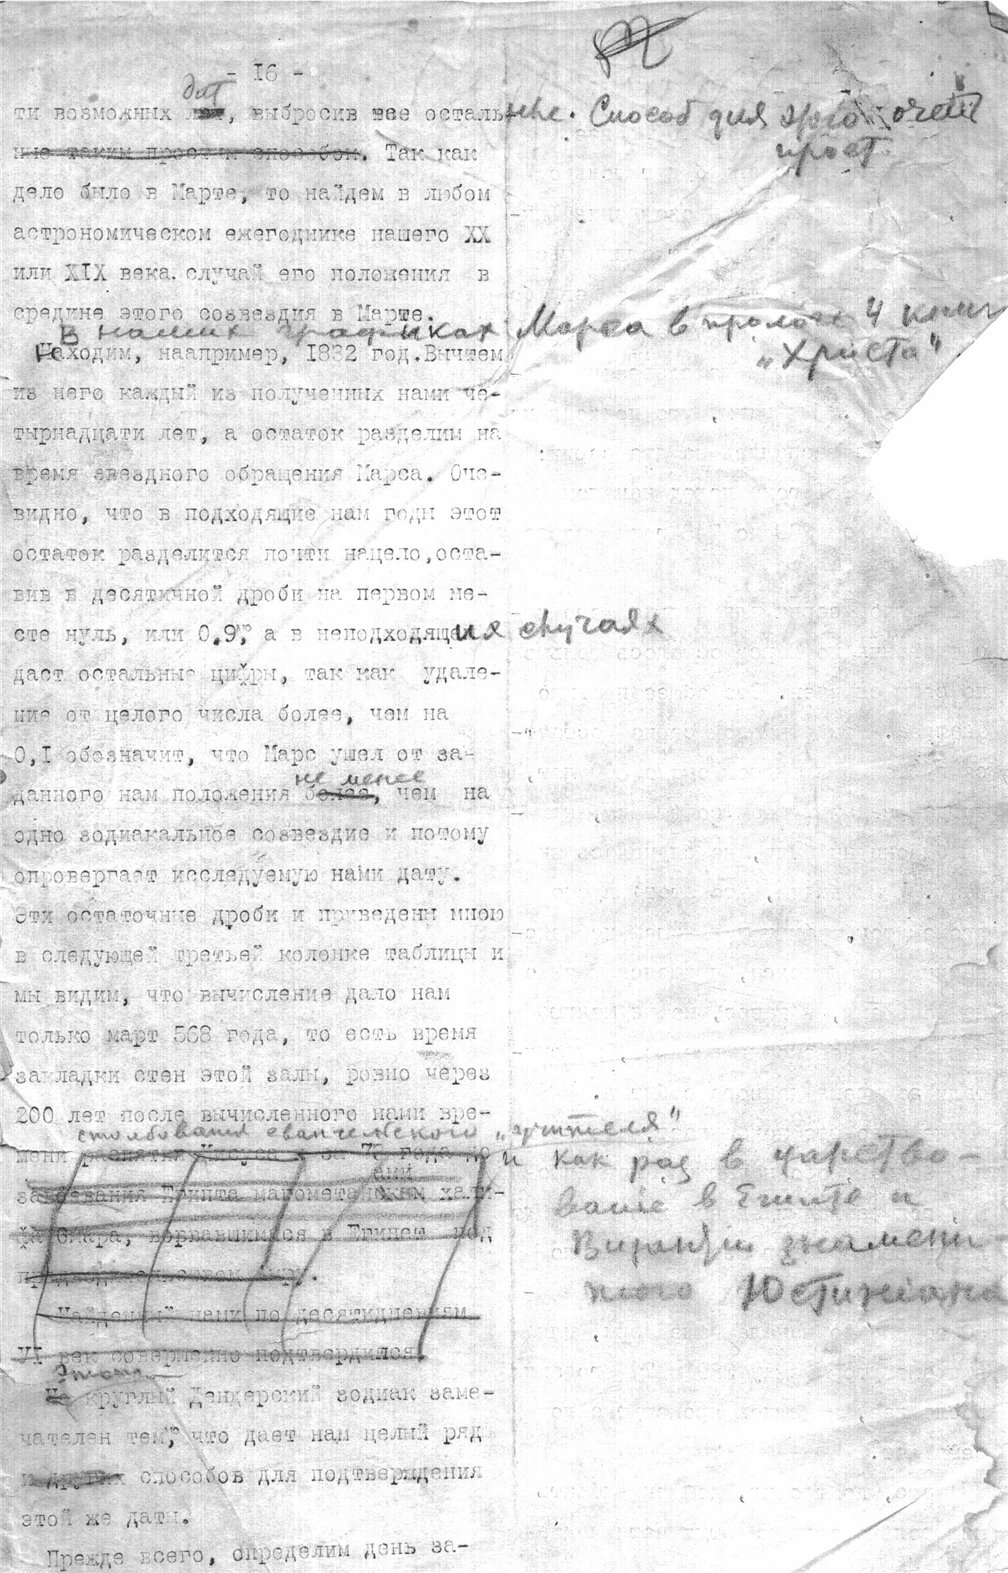 - 16 -
дат
ти возможных лет, выбросив все остальные. Способ для этого очень
прост.
ные таким простым способом. Так как
дело было в Марте, то найдем в любом
астрономическом ежегоднике нашего XX
или XIX века случай его положения в
средине этого созвездия в Марте.
в наших графиках Марса в прологе 4 книги
"Христа"
Находим, наапример, 1882 год. Вычтем
из него каждый из полученных нами че-
тырнадцати лет, а остаток разделим на
время звездного обращения Марса. Оче-
видно, что в подходящие нам годы этот
остаток разделится почти нацело, оста-
вив в десятичной дроби на первом ме-
сте нуль, или 0.9, а в неподходящих случаях
даст остальные цифры, так как удале-
ние от целого числа более, чем на
0,1 обозначит, что Марс ушел от за-
не менее
данного нам положения более, чем на
одно зодиакальное созвездие и потому
опровергает исследуемую нами дату.
Эти остаточные дроби и приведены мною
в следующей третьей колонке таблицы и
мы видим, что вычисление дало нам
только март 568 года, то есть время
закладки стен этой залы, ровно через
200 лет после вычисленного нами вре-
столбования евангельского "учителя"
мени распятия Иисуса и за 7 года до и как раз в царство-
вание в Египте и
Византии знамени-
того Юстиниана
ами
завоевания Египта магометанским хали-
фа Омара, ворвавшимися в Египет под
предводительством
Найденный нами по десятидневиям
VI век совершенно подтвердился.
Этот
Но круглый Дендерский зодиак заме-
чателен тем, что дает нам целый ряд
и других способов для подтверждения
этой же даты.
Прежде всего, определим день за-